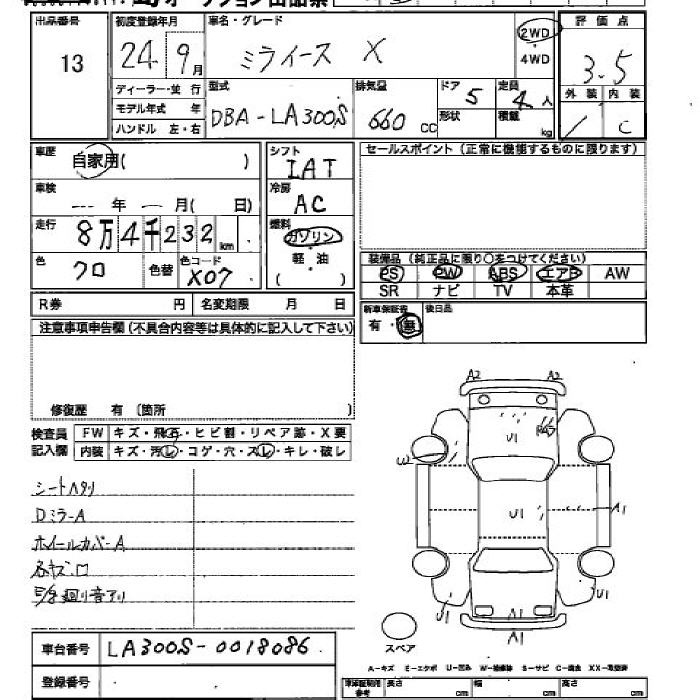 出品番号 初度登録年月 車名・グレード 評価点
13 24 9月 ミライース X 2WD 4WD 3.5
ディーラー・並行 型式 排気量 ドア 定員 外装 内装
モデル年式 年 DBA-LA300S 660 CC 5 4人 / C
ハンドル 左・右 形状 積載 kg
車歴 自家用( ) シフト IAT セールスポイント (正常に機能するものに限ります)
車検 --- 年 — 月( 日) 冷房 AC
走行 8万4千232km 燃料 ガソリン・軽油・( )
色 クロ 色替 色コード X07 装備品(純正品に限り○をつけてください)
PS PW ABS エアB AW
SR ナビ TV 本革
R券 円 名変期限 月 日 新車保証書 有・無 後日品
注意事項申告欄(不具合内容等は具体的に記入して下さい)
修復歴 有 (箇所 )
検査員 FW キズ・飛石・ヒビ割・リペア跡・X要
記入欄 内装 キズ・汚レ・コゲ・穴・スレ・キレ・破レ
シートヘタリ
Dミラ-A
ホイールカバ-A
A2 A2
U1
W
U1 A1
U1 A1 U1
A1
スペア
車台番号 LA300S-0018086
登録番号
A-キズ E-エクボ U-凹み W-補修跡 S-サビ C-腐食 XX-取替済
長さ cm 幅 cm 高さ cm